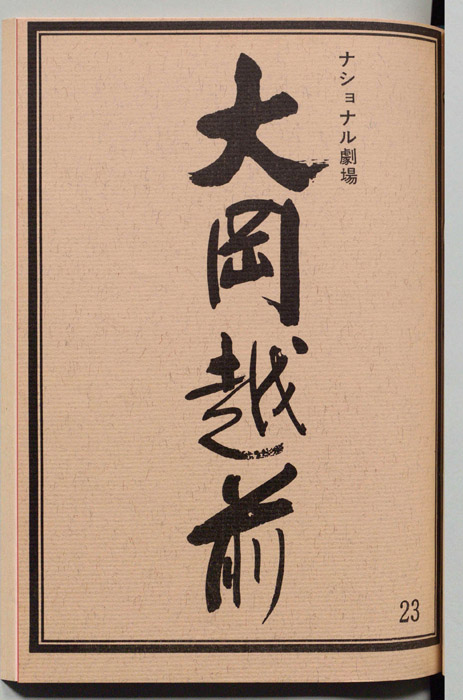 ナショナル劇場
大岡越前
23